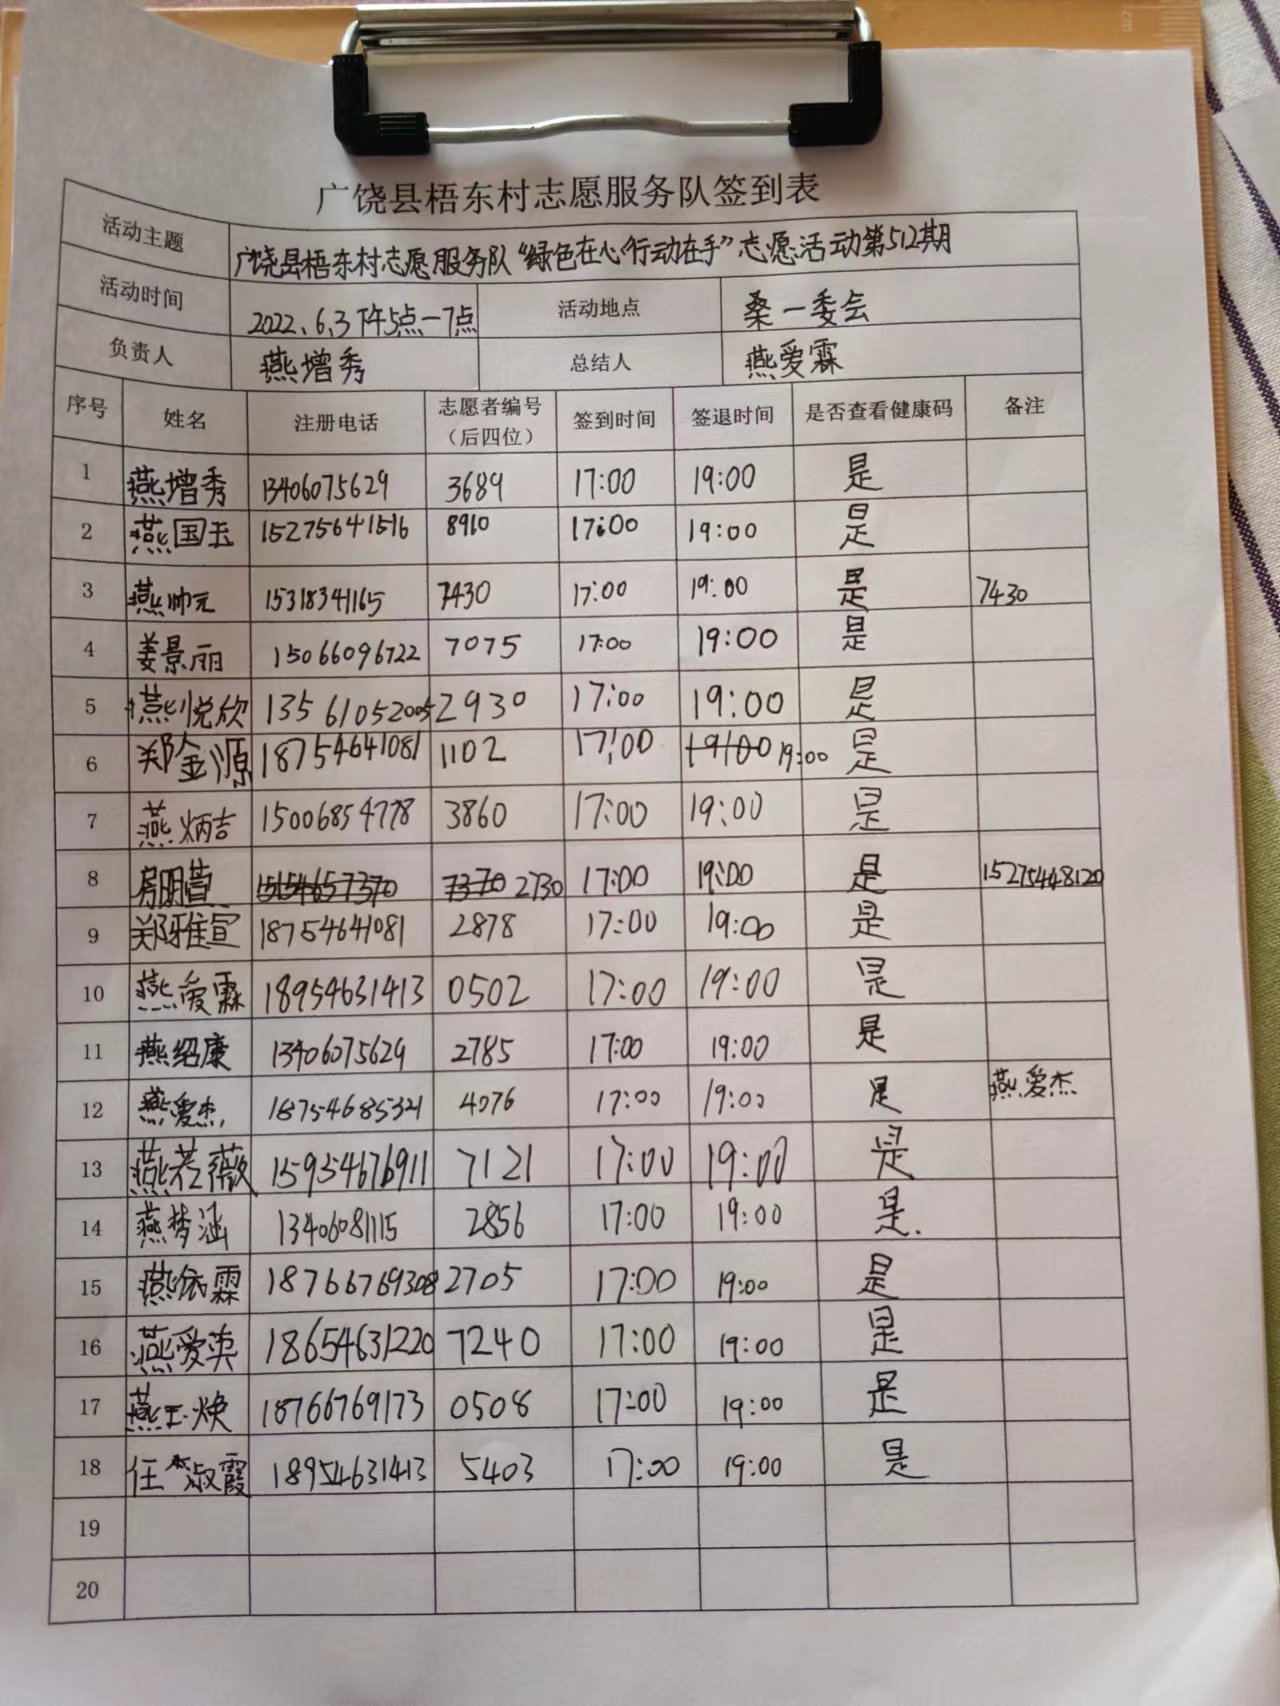 广饶县梧东村志愿服务队签到表
活动主题 广饶县梧东村志愿服务队“绿色在心 行动在手”志愿活动第512期
活动时间 2022.6.3下午5点一7点 活动地点 桑一委会
负责人 燕增秀 总结人 燕爱霖
序号 姓名 注册电话 志愿者编号（后四位） 签到时间 签退时间 是否查看健康码 备注
1 燕增秀 13406075629 3689 17:00 19:00 是
2 燕国玉 15275641516 8910 17:00 19:00 是
3 燕帅元 15318341165 7430 17:00 19:00 是 7430
4 姜景丽 15066096722 7075 17:00 19:00 是
5 燕悦欣 13561052005 2930 17:00 19:00 是
6 郑金源 18754641081 1102 17:00 19:00 19:00 是
7 燕炳吉 15006854778 3860 17:00 19:00 是
8 房明萱 15154657370 7370 2730 17:00 19:00 是 15275448120
9 郑雅宣 18754641081 2878 17:00 19:00 是
10 燕爱霖 18954631413 0502 17:00 19:00 是
11 燕绍康 13406075629 2785 17:00 19:00 是
12 燕爱杰 18754685321 4076 17:00 19:00 是 燕爱杰
13 燕若薇 15954676911 7121 17:00 19:00 是
14 燕梦涵 13406081115 2856 17:00 19:00 是.
15 燕依霖 18766769308 2705 17:00 19:00 是
16 燕爱英 18654631220 7240 17:00 19:00 是
17 燕玉焕 18766769173 0508 17:00 19:00 是
18 任淑霞 18954631413 5403 17:00 19:00 是
19
20